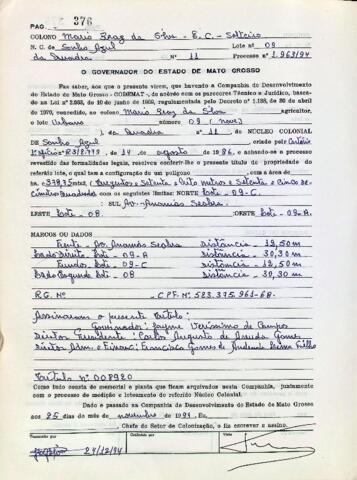 PAG. 376
COLONO Mario Braz da Silva - B.C. - Solteiro
N. C. de Sonho Azul Lote nº 09
da Quadra Nº 11 Processo nº 1.963/94
O GOVERNADOR DO ESTADO DE MATO GROSSO
Faz saber, aos que o presente virem, que havendo a Companhia de Desenvolvimento
do Estado de Mato Grosso - CODEMAT -, de acôrdo com os pareceres Técnico e Jurídico, basea-
do na Lei nº de 10 de junho de 1969, regulamentada pelo Decreto nº de 30 de abril
de 1970, concedido, ao colono Mario Braz da Silva agricultor,
o lote Urbano nº 09 (nove)
, da Quadra nº 11, do NÚCLEO COLONIAL
DE Sonho Azul, criado e registrado pelo Cartório
de 14 de agosto de 1986, e achando-se o processo
revestido das formalidades legais, resolveu conferir-lhe o presente título de propriedade do
referido lote, o qual tem a configuração de um polígono com a área de
ha. 378,75 mts2 (Trezentos e Setenta e Oito metros e Setenta e Cinco De-
címetros Quadrados com os seguintes limites: NORTE Lote - 09-C
SUL Av. Ananias Seabra
LESTE Lote - 08 OESTE Lote - 09-A
MARCOS OU DADOS
Frente - Av. Ananias Seabra Distância - 12,50m
Lado Direito - Lote - 09-A Distância - 30,30m
Fundos - Lote - 09-C Distância - 12,50m
Lado Esquerdo Lote - 08 Distância - 30,30m
R.G. Nº CPF Nº 523.375.961-68
Assinaram o presente Título:
Governador: Jayme Veríssimo de Campos
Diretor Presidente: Carlos Augusto de Arruda Gomes
Diretor Adm. e Financ: Francisco Gomes de Andrade Lima Filho
Título Nº 008920
Como tudo consta do memorial e planta que ficam arquivados nesta Companhia, juntamente
com o processo de medição e loteamento do referido Núcleo Colonial.
Dado e passado na Companhia de Desenvolvimento do Estado de Mato Grosso
aos 25 dias do mês de novembro de 1994. Eu,
Chefe do Setor de Colonização, o fiz escrever e assino.
Transcrito por Conferido por Visto
24/12/94